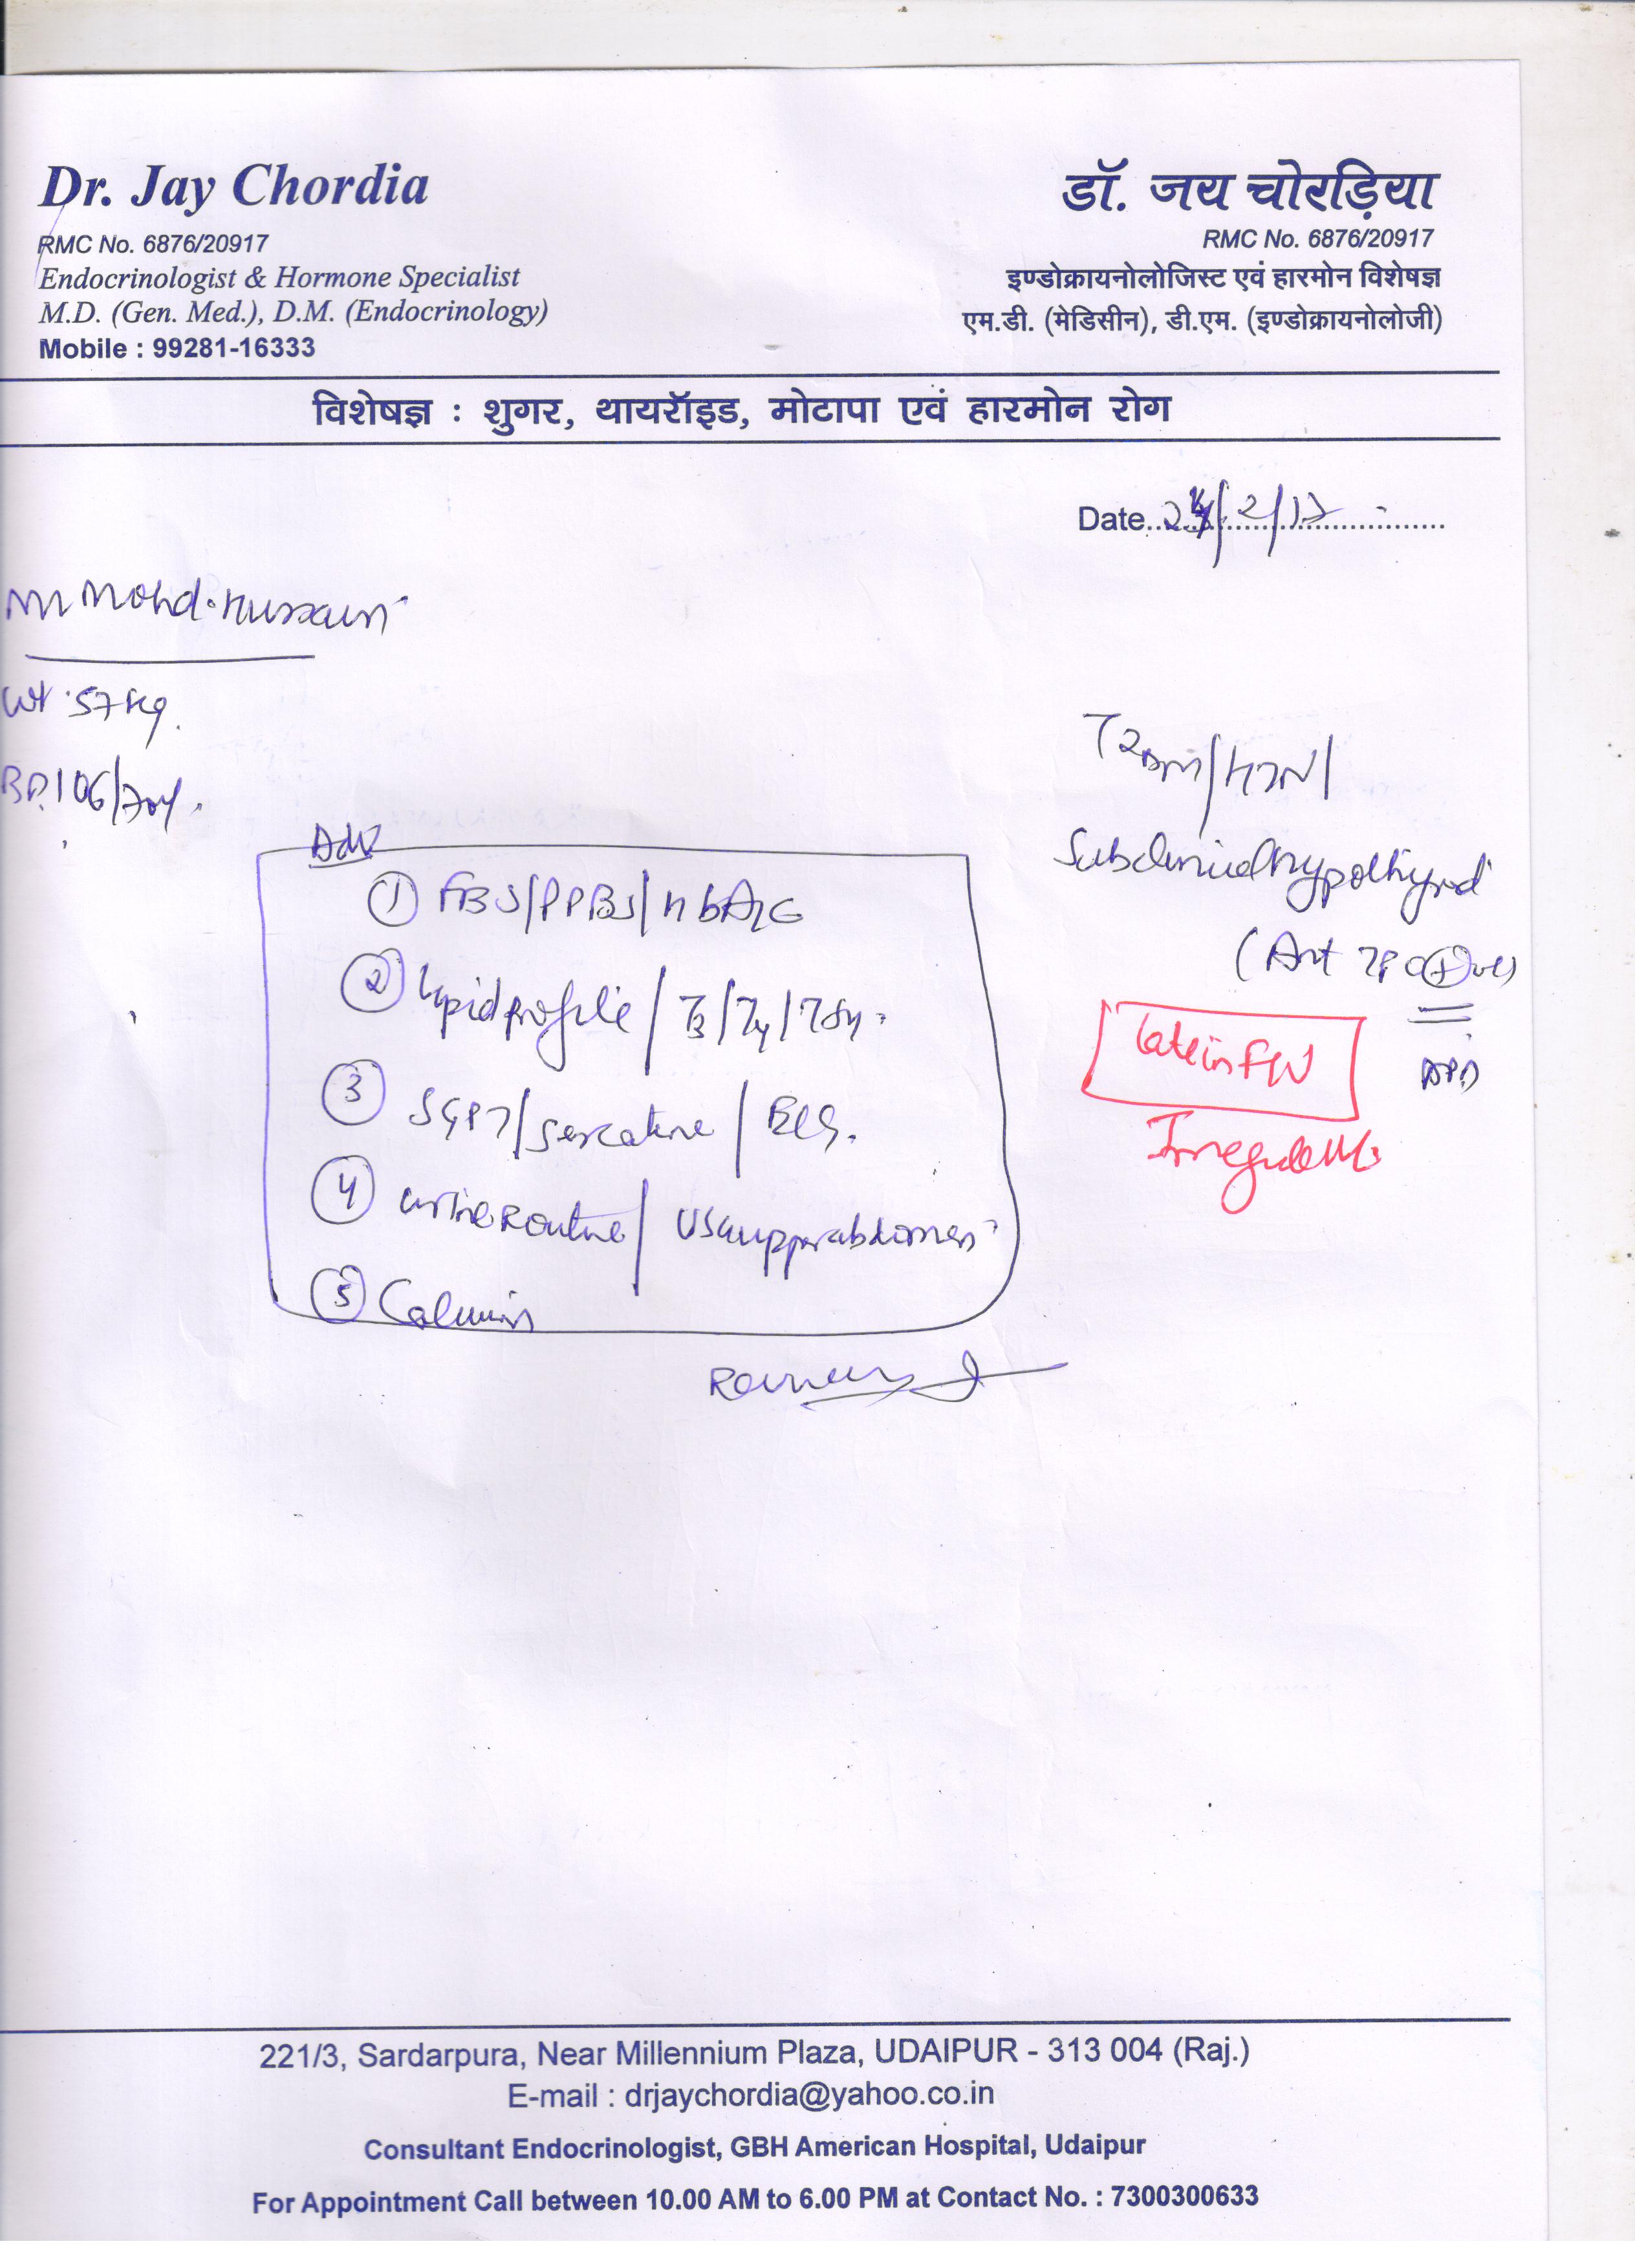 Dr. Jay Chordia
RMC No. 6876/20917
Endocrinologist & Hormone Specialist
M.D. (Gen. Med.), D.M. (Endocrinology)
Mobile : 99281-16333
डॉ. जय चोरड़िया
RMC No. 6876/20917
इण्डोक्रायनोलोजिस्ट एवं हारमोन विशेषज्ञ
एम.डी. (मेडिसीन), डी.एम. (इण्डोक्रायनोलोजी)
विशेषज्ञ : शुगर, थायरॉइड, मोटापा एवं हारमोन रोग
Date 24/2/17
Mohd. Hussain
Wt 57 kg.
BP 106/70
T2DM/HTN/
Subclinical hypothyroid
(Anti TPO +ve)
late in F/U
Adv
① FBS/PPBS/HbA1C
② Lipid profile / T3/T4/TSH
③ SGPT/Sercatine / ECG.
④ urine Routine / USG upper abdomen
⑤
221/3, Sardarpura, Near Millennium Plaza, UDAIPUR - 313 004 (Raj.)
E-mail : drjaychordia@yahoo.co.in
Consultant Endocrinologist, GBH American Hospital, Udaipur
For Appointment Call between 10.00 AM to 6.00 PM at Contact No. : 7300300633